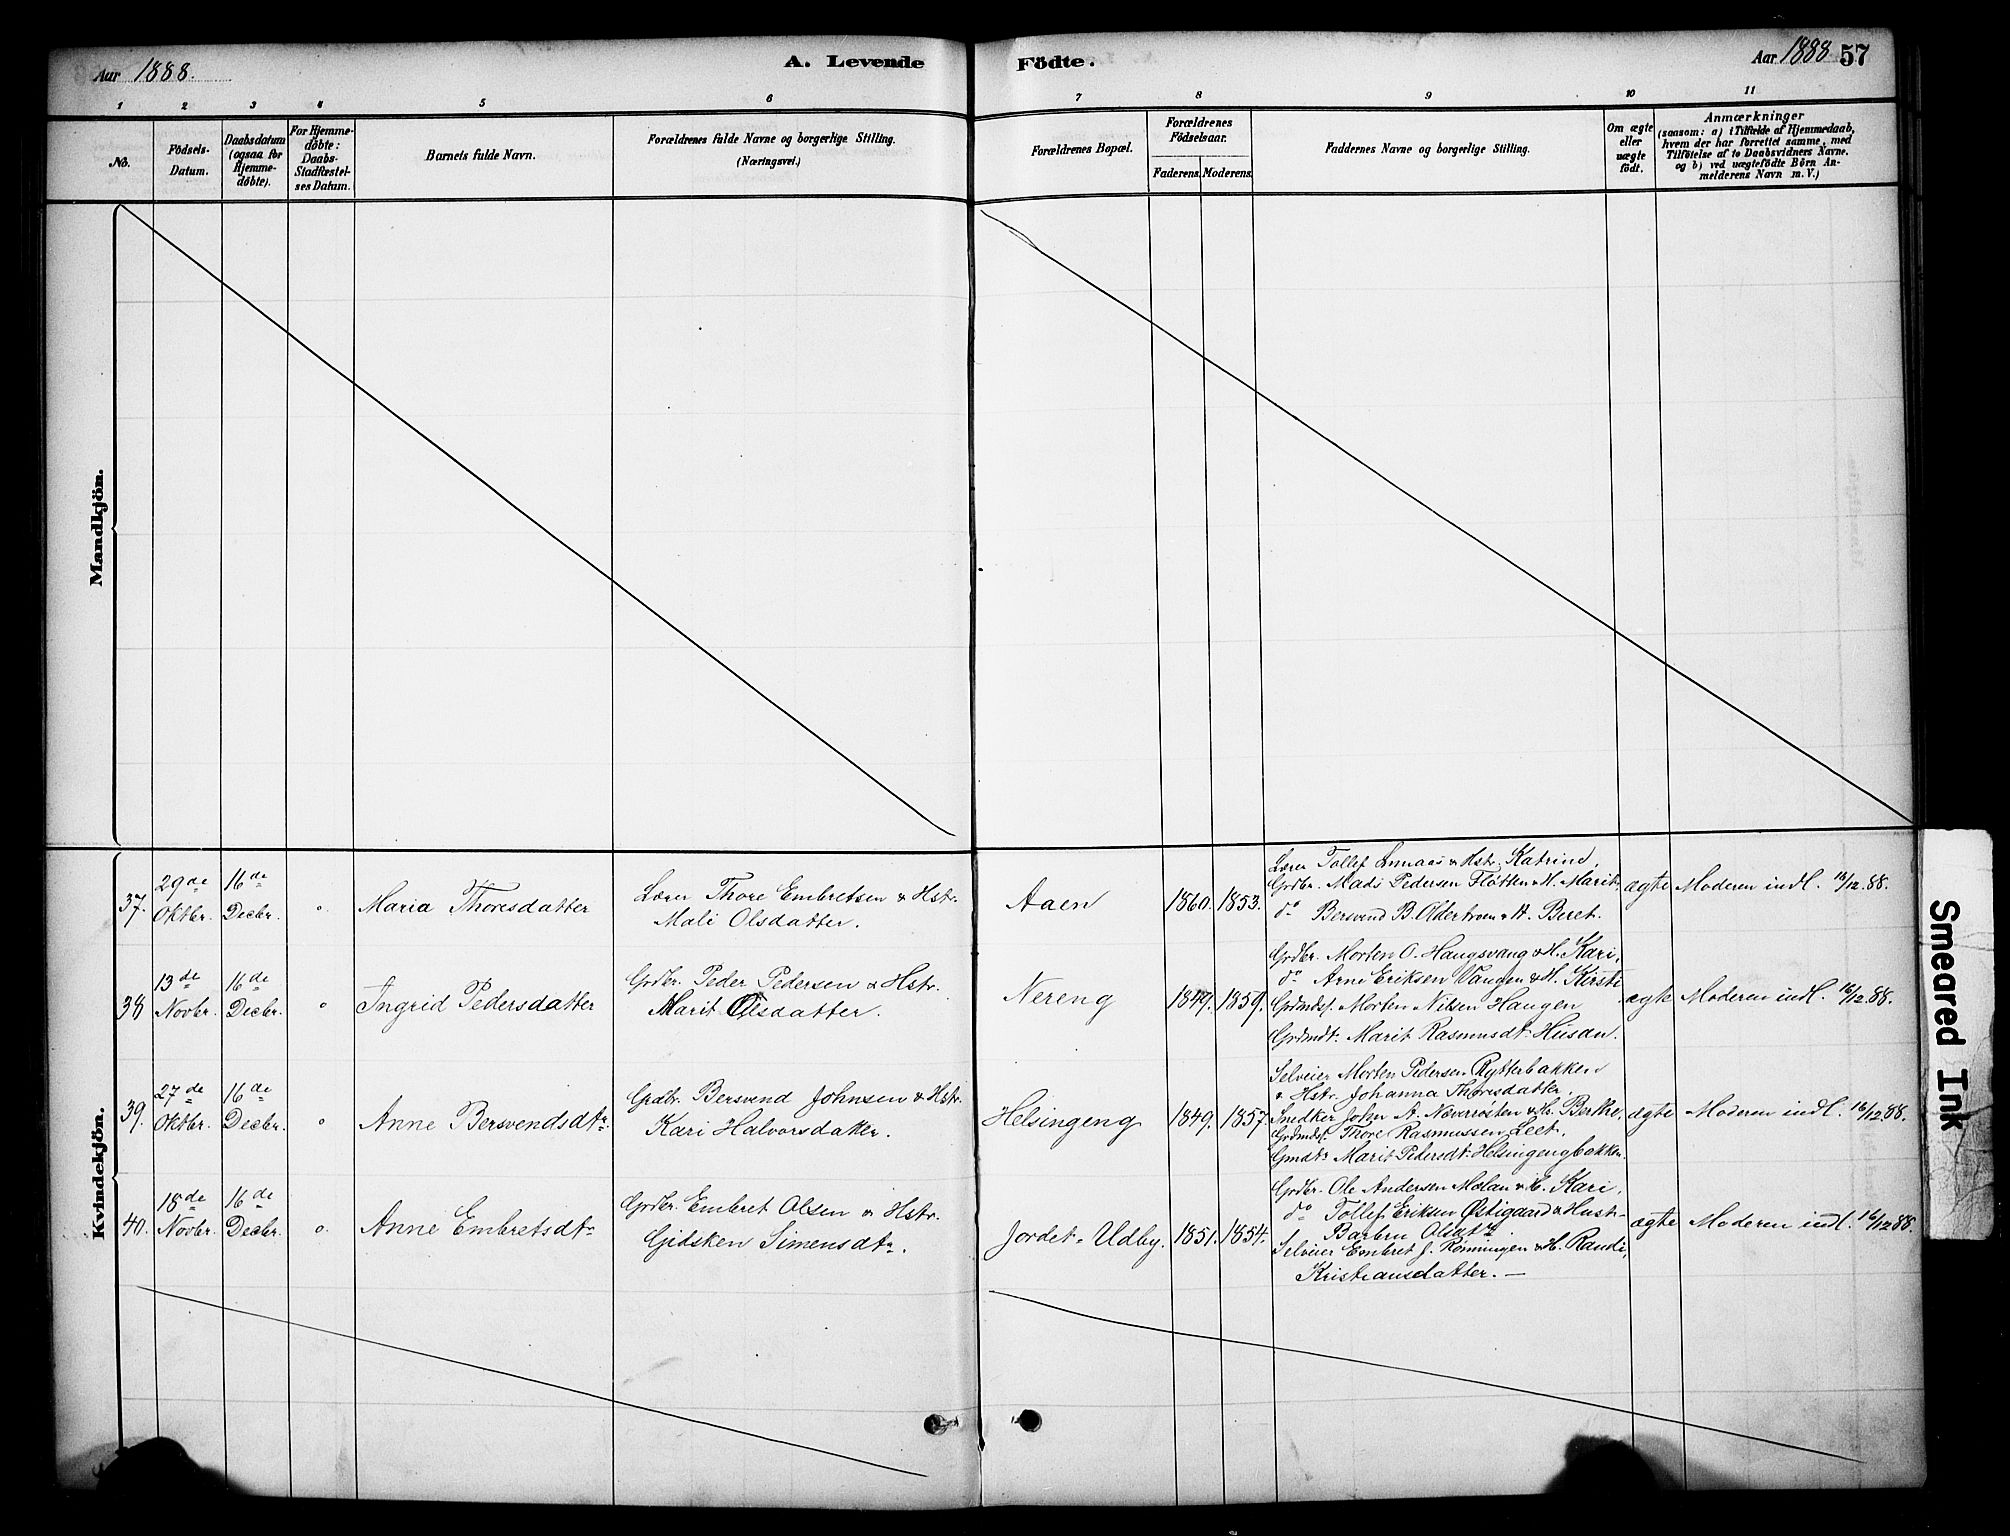 Aar 1888.
A. Levende
Födte.
Aar 1888 57
1 2 3 4 5 6 7 8 9 10 11
No.
Födsels-
Datum.
Daabsdatum
(ogsaa for
Hjemme-
döbte).
For Hjemme-
döbte:
Daabs-
Stadfæstel-
ses Datum.
Barnets fulde Navn.
Forældrenes fulde Navne og borgerlige Stilling.
(Næringsvei.)
Forældrenes Bopæl.
Forældrenes
Födselsaar.
Faderens. Moderens.
Faddernes Navne og borgerlige Stilling.
Om ægte
eller
uægte
födt.
Anmærkninger
(saasom: a) i Tilfælde af Hjemmedaab,
hvem der har forrettet samme, med
Tilföielse af to Daabsvidners Navne.
og b) ved uægtefödte Börn An-
melderens Navn m. V.)
Mandkjön.
Kvindekjön.
37.
29de
Oktbr.
16de
Decbr.
Maria Thoresdatter
Lærer Thore Embretsen & Hstr.
Mali Olsdatter.
Aaen
1860. 1853.
Lærer Tollef & Hstr. Katrine,
Grdbr. Mads Pedersen Fløtten & H. Marit,
do Bersvend B. & H. Beret.
ægte
Moderen indl. 16/12.88.
38
13de
Novbr.
16de
Decbr.
Ingrid Pedersdatter
Grdbr. Peder Pedersen & Hstr.
Marit Olsdatter.
Nereng
1849. 1859.
Grdbr. Morten O. Haugsvang & H. Kari,
do Arne Eriksen Vangen & H. Kirsti
Grdmdsf. Morten Nilsen Haugen
Grdmdt. Marit Rasmusdt. Husan.
ægte
Moderen indl. 16/12.88.
39.
27de
Oktbr.
16de
Decbr.
Anne Bersvendsdtr
Grdbr. Bersvend Johnsen & Hstr.
Kari Halvorsdatter.
Helsingeng
1849. 1857.
Selveier Morten Pedersen Rytterbakken
& Hstr. Johanna Thoresdatter
Snedker John A. Næverrosten & H. Berthe,
Grdmdsf. Thore Rasmussen Leet,
Gmdtr Marit Pedersdt. Helsingengbakken.
ægte
Moderen indl. 16/12.88.
40.
18de
Novbr.
16de
Decbr.
Anne Embretsdtr
Grdbr. Embret Olsen & Hstr.
Gidsken Simensdtr.
Jordet, Udby.
1851. 1854.
Grdbr. Ole Andersen Mælan & H. Kari,
do Tollef Eriksen Østigaard & Hustr
Barbru Olsdtr
Selveier Embret J. Rønningen & H. Randi,
Kristiansdatter. —
ægte
Moderen indl. 16/12 88.
Smeared Ink